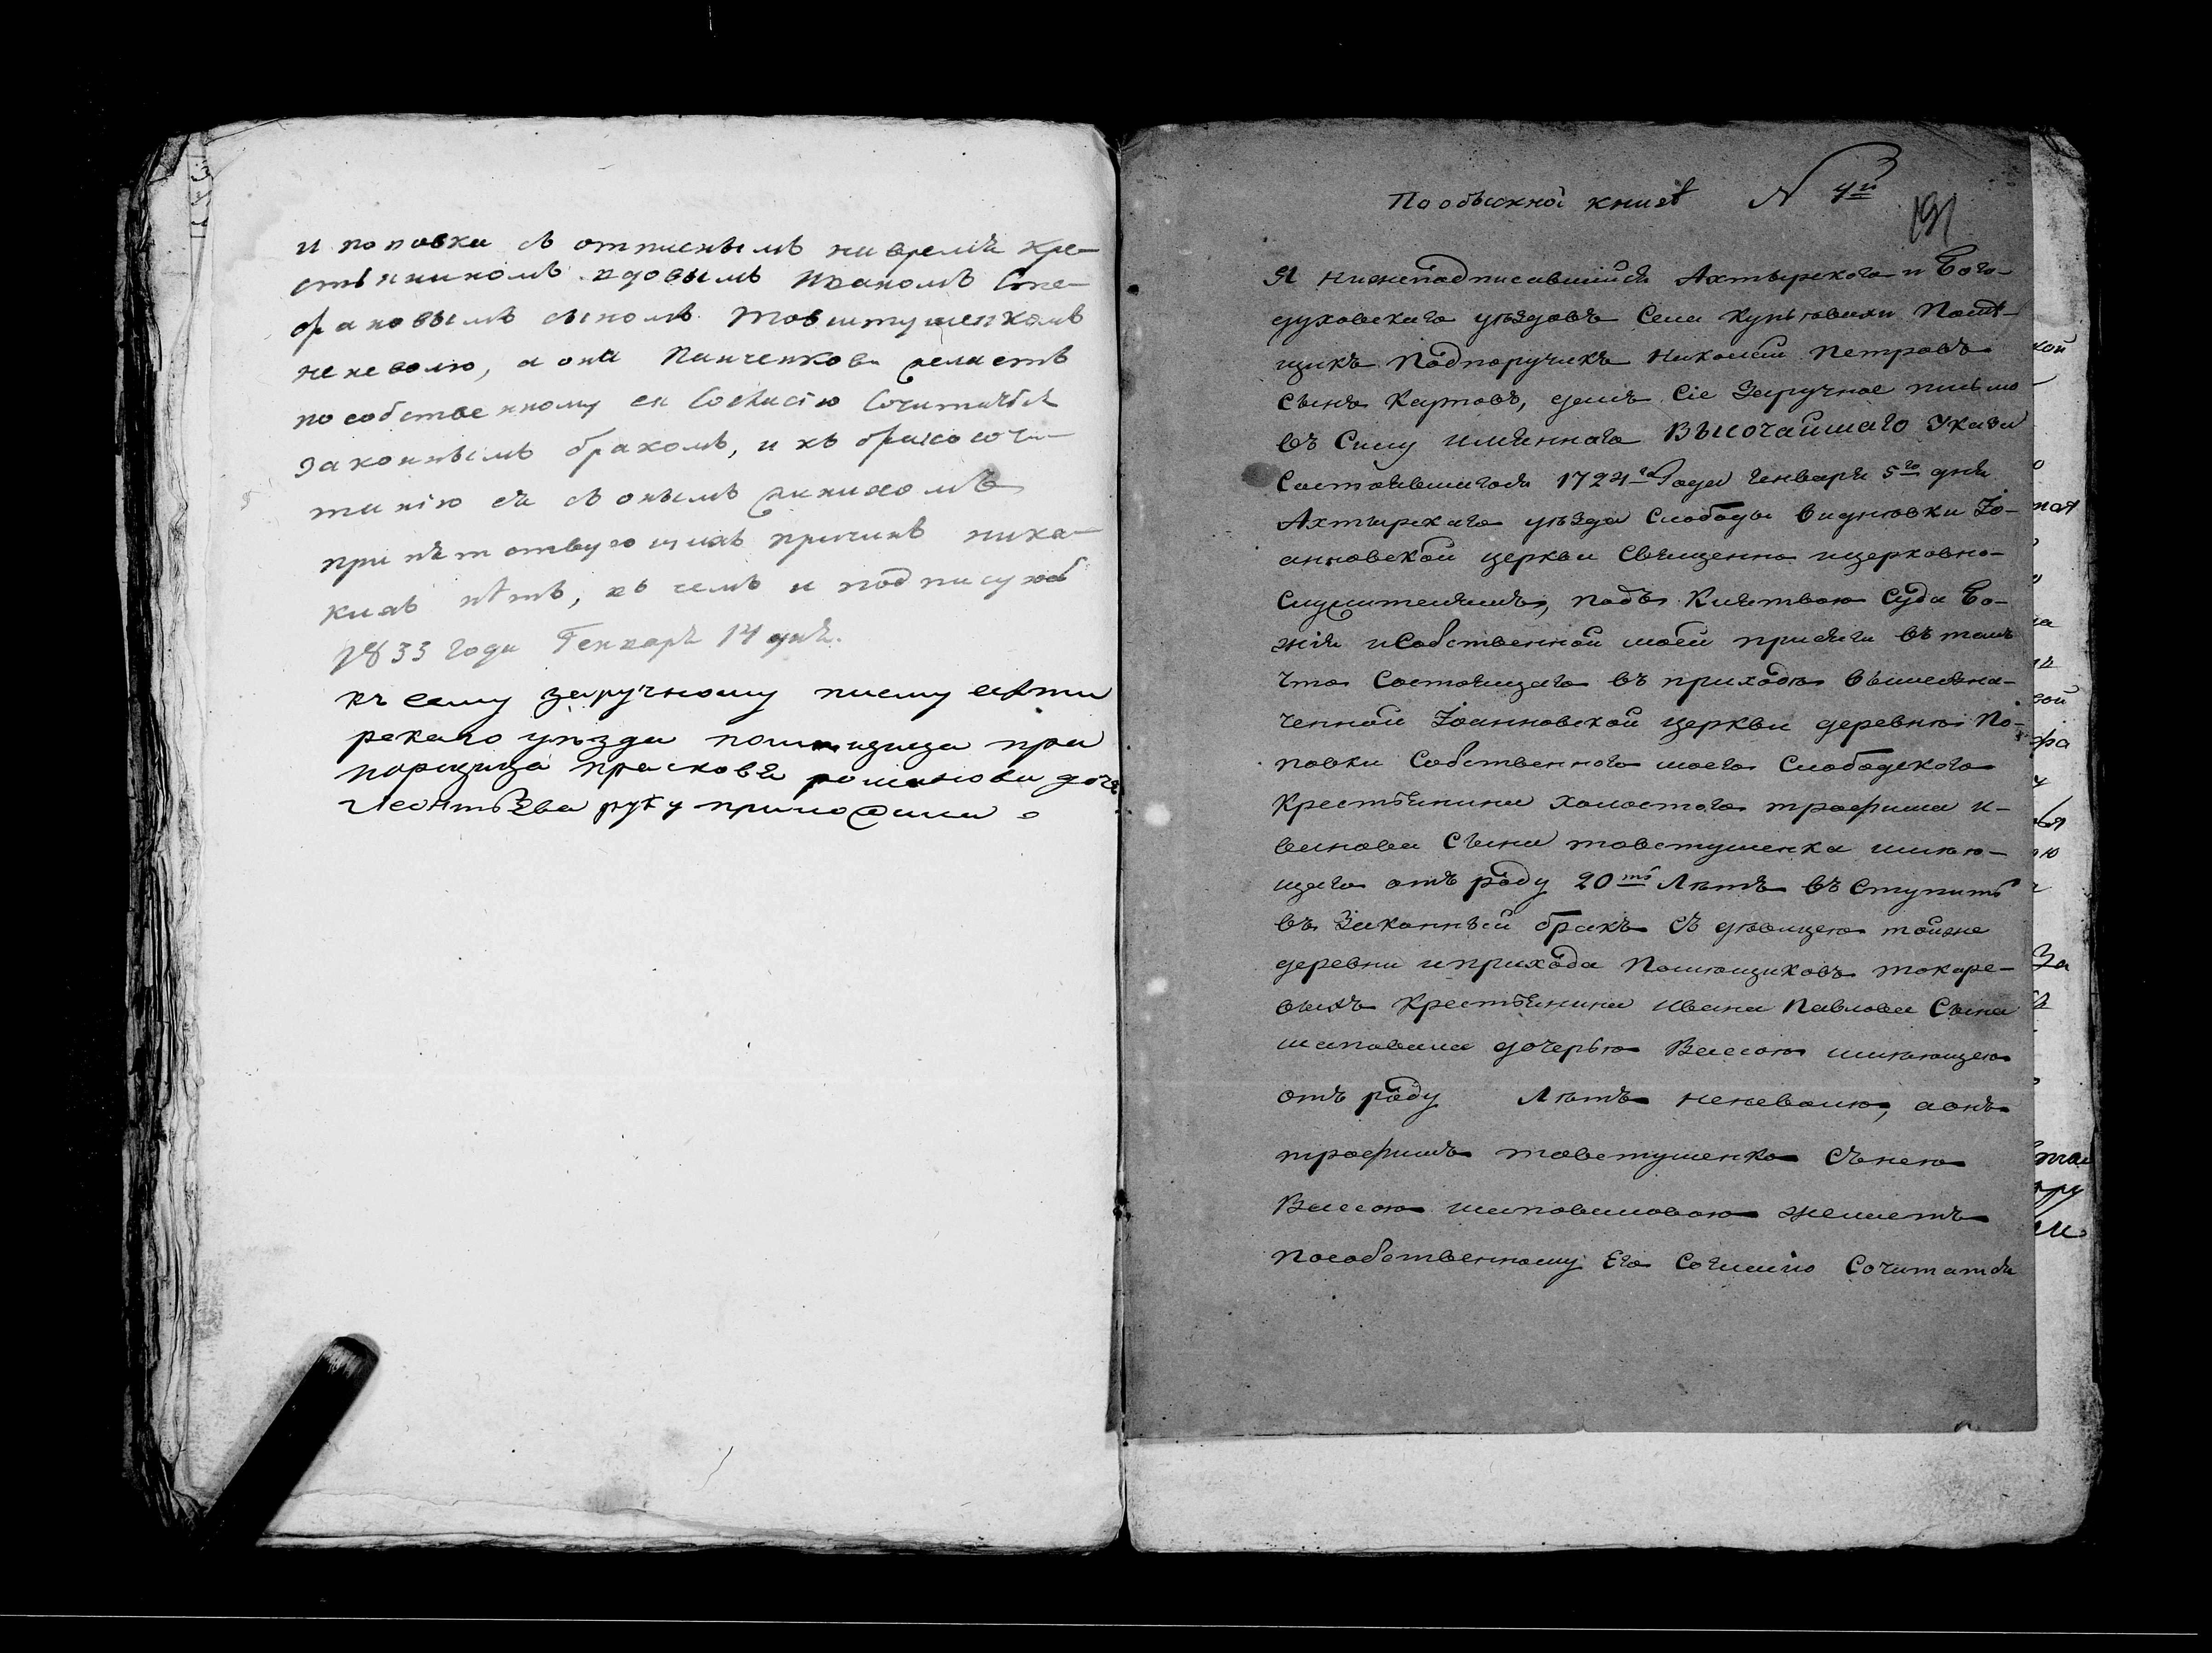 и поповки съ отписнымъ на время кре-
стьяниномъ вдовымъ Иваномъ Сте-
фановымъ сыномъ Товштушенкомъ
неневолю, а она Панченкова желаетъ
пособственному ея Согласію Сочитатся
Законнымъ бракомъ, и къ бракосоче-
танію ея съ онымъ женихомъ
препятствующихъ причинъ ника-
кихъ нѣтъ, въ чемъ и подписуюсь
1833 года Генваря 14 дня.
къ сему заручному писму ахти
рскаго уѣзда помещица пра
порщица прасковя романова доч
Леонтьева руку приложила
Пообыскной книгѣ N 4й
191
Я нижеподписавшійся Ахтырского и Бого-
духовскаго уѣздовъ Села Купьевахи Помѣ-
щикъ Подпоручикъ Николай Петровъ
Сынъ Карповъ, далъ Сіе Заручное письмо
въ Силу имяннаго ВЫСОЧАЙШАГО Указа
Состоявшагося 1724го Года Генваря 5го дня
Ахтырскаго уѣзда Слободы Видновки Іо-
анновской церкви Священно ицерковно-
Служителямъ, подъ Клятвою Суда Бо-
жія иСобственной моей присяги въ томъ
Что Состоящаго въ приходѣ вышеозна-
ченной Іоанновской церкви деревнѣ По-
повки Собственного моего Слободского
Крестьянина холостого трофима И-
ванова Сына товстушенка имею-
щаго отъ роду 20ть Лѣтъ въ Ступить
въ Законный бракъ Съ дѣвицею тойже
деревни иприхода Помѣщиковъ токаре-
выхъ Крестьянина Ивана Павлова Сына
шаповала дочерью Вассою имѣющею
отъ роду Лѣтъ неневолю, аонъ
трофимъ товстушенко Сънею
Вассою шаповаловою желаетъ
Пособственному Его Согласію Сочитатся